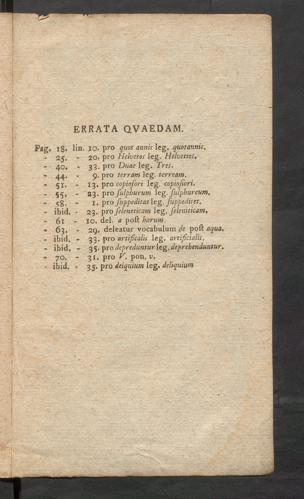 ERRATA QVAEDAM.
Pag. 18. lin. 10. pro quot annis leg. quotannis.
- 25. - 20. pro Helvetos leg. Helvetios.
- 40. - 33. pro Duae leg. Tres.
- 44. - 9. pro terram leg. terream.
- 51. - 13. pro copiosori leg. copiosiori.
- 55. - 23. pro sulphurum leg. sulphureum.
- 58. - 1. pro suppeditat leg. suppeditet.
- ibid. - 23. pro seleneticam leg. seleniticam.
- 61 - 10. del. a post harum.
- 63. - 29. deleatur vocabulum de post aqua.
- ibid. - 33. pro artificalis leg. artificialis.
- ibid. - 35. pro depreduntur leg. deprehenduntur.
- 70. - 31. pro V. pon. v.
- ibid. - 35. pro deiquium leg. deliquium